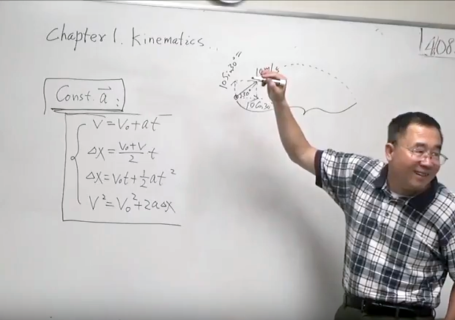 Chapter 1. Kinematics.
4:08
10 sin 30°
10 m/s
30°
Const. a⃗ :
V = V₀ + at
Δx = (V₀+V)/2 t
Δx = V₀t + ½at²
V² = V₀² + 2aΔx